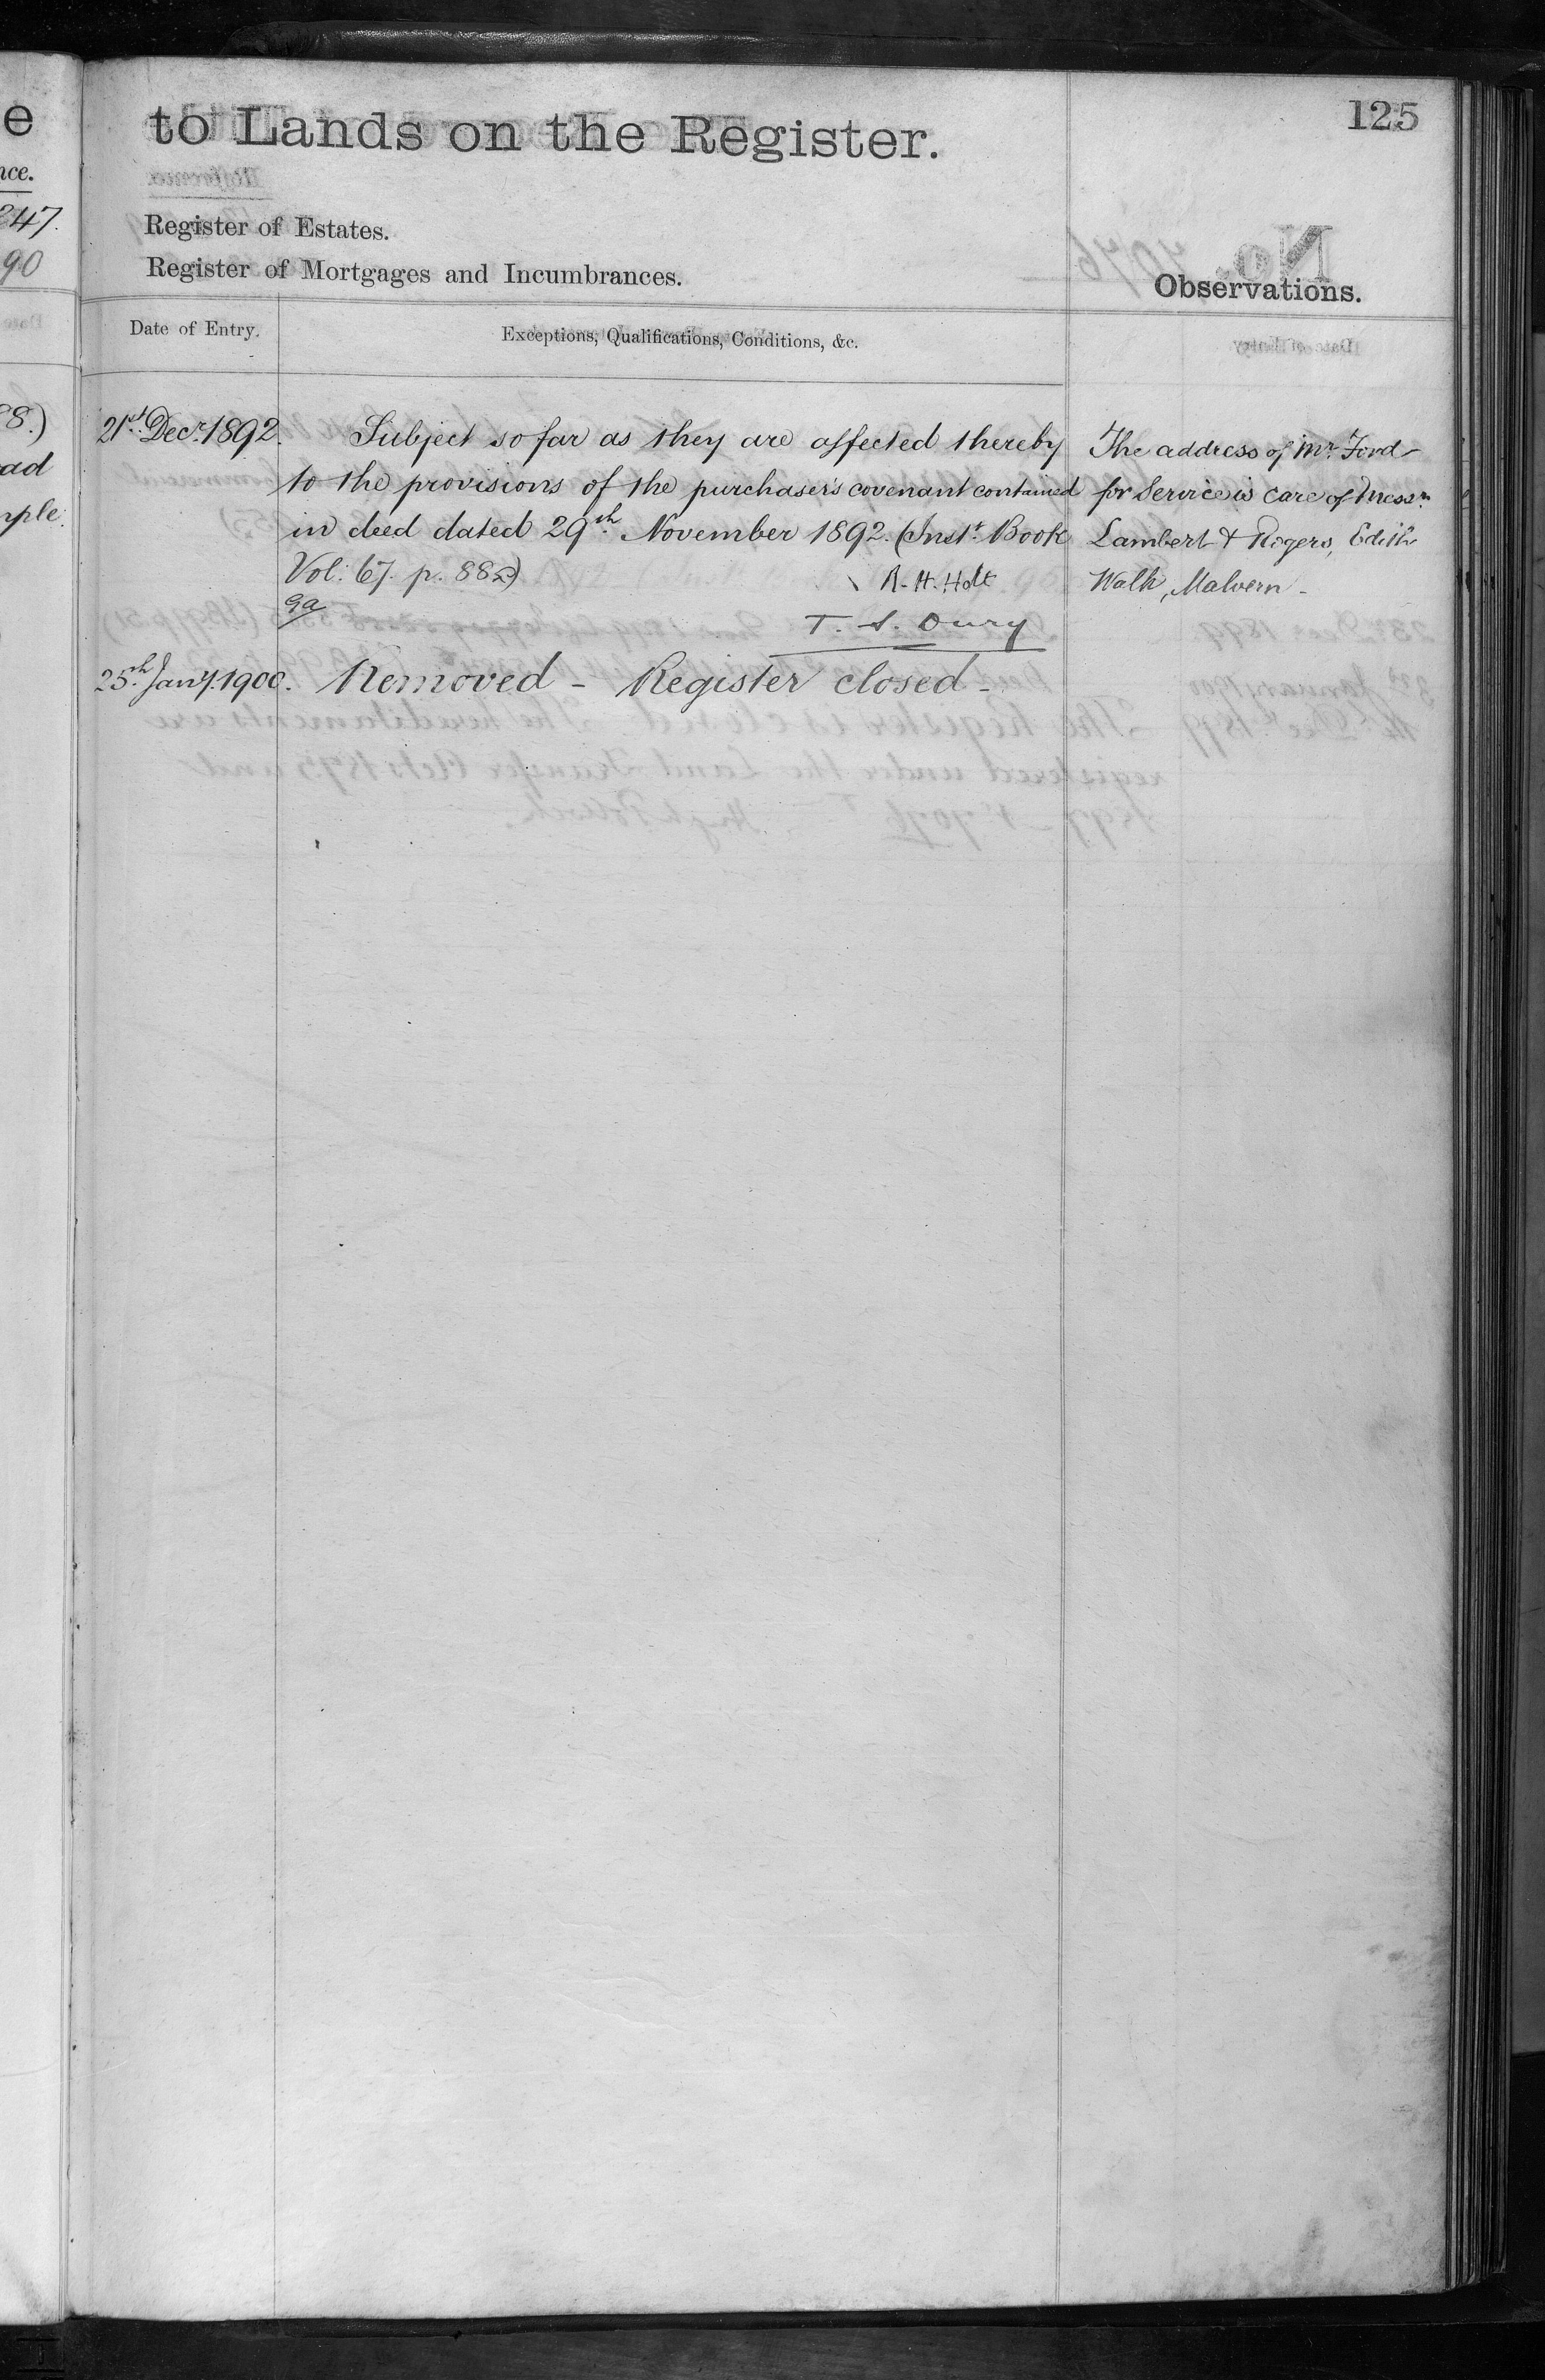 125
to Lands on the Register.
Register of Estates.
Register of Mortgages and Incumbrances.
Observations.
Date of Entry.
Exceptions, Qualifications, Conditions, &c.
21st Decr. 1892. Subject so far as they are affected thereby
to the provisions of the purchaser's covenant contained
in deed dated 29th November 1892. (Inst. Book
Vol: 67. p. 882)
R. H. Holt
T. S. Oury
25th Jany. 1900. Removed - Register closed -
The address of Mr. Ford
for Service is care of Messrs.
Lambert & Rogers, Edith
Walk, Malvern -
e
nce.
247.
90
88.)
ad
mple.